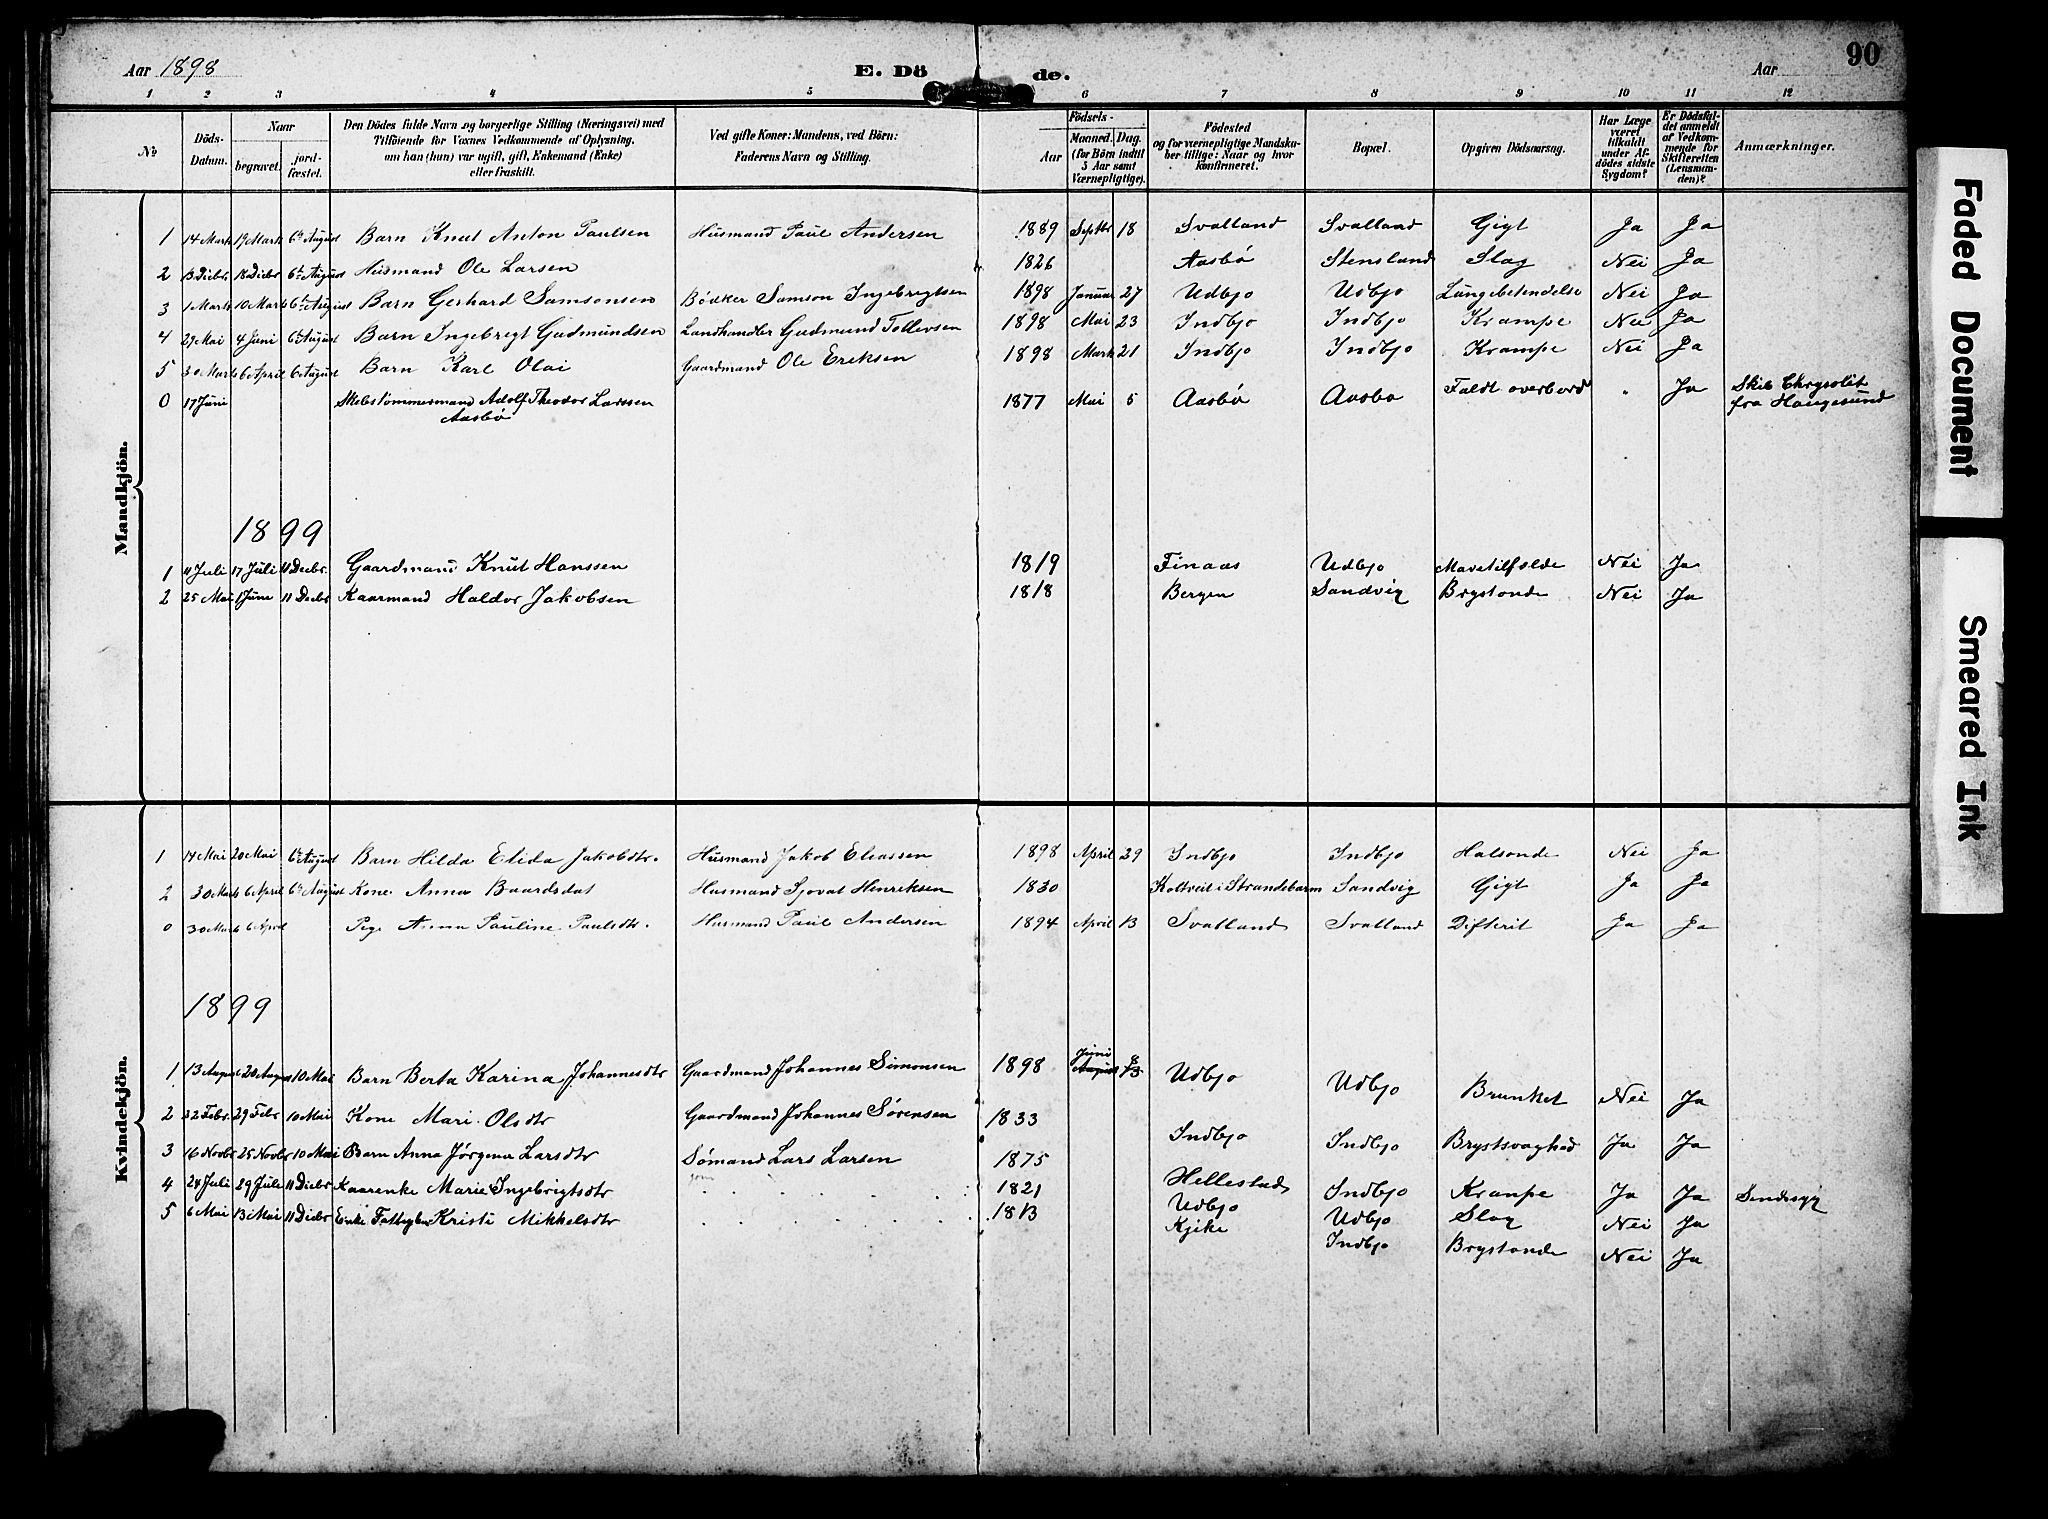 Aar 1898
E. Dö
de.
Aar
90
1 2 3 4 5 6 7 8 9 10 11 12
No
Döds-
Datum.
Naar
begravet.
jord-
fæstet.
Den Dödes fulde Navn og borgerlige Stilling (Næringsvei) med
Tilföiende for Voxnes Vedkommende af Oplysning,
om han (hun) var ugift, gift, Enkemand (Enke)
eller fraskilt.
Ved gifte Koner: Mandens, ved Börn:
Faderens Navn og Stilling.
Födsels-
Aar
Maaned. Dag.
(for Börn indtil
5 Aar samt
Værnepligtige).
Födested
og for værnepligtige Mandska-
ber tillige: Naar og hvor
konfirmeret.
Bopæl.
Opgiven Dödsaarsag.
Har Læge
været
tilkaldt
under Af-
dödes sidste
Sygdom?
Er Dödsfal-
det anmeldt
af Vedkom-
mende for
Skifteretten
(Lensman-
den)?
Anmærkninger.
Mandkjön.
1 14 Marts 19 Marts 6te August Barn Knut Anton Paulsen Husmand Paul Andersen 1889 Septbr 18 Svalland Svalland Gigt Ja Ja
2 13 Decbr 18 Decbr 6te August Husmand Ole Larsen 1826 Aasbø Stensland Slag Nei Ja
3 1 Marts 10 Marts 6te August Barn Gerhard Samsonsen Bødker Samson Ingebrigtsen 1898 Januar 27 Udbjo Udbjo Lungebetendelse Nei Ja
4 29 Mai 4 Juni 6te August Barn Ingebrigt Gudmundsen Landhandler Gudmund Tollevsen 1898 Mai 23 Indbjo Indbjo Krampe Nei Ja
5 30 Marts 6 April 6 August Barn Karl Olai Gaardmand Ole Eriksen 1898 Marts 21 Indbjo Indbjo Krampe Nei Ja
0 17 Juni Skibstømmermand Adolf Theodor Larssen 1877 Mai 5 Aasbø Aasbø Faldt overbord " Ja Skib Chrysolit
Aasbø fra Haugesund
1899
1 11 Juli 17 Juli 11 Decbr. Gaardmand Knut Hanssen 1819 Finaas Udbjo Mavetilfelde Nei Ja
2 25 Mai 1 Juni 11 Decbr Kaarmand Haldor Jakobsen 1818 Bergen Sandvig Brystonde Nei Ja
Kvindekjön.
1 14 Mai 20 Mai 6te August Barn Hilda Elida Jakobdtr. Husmand Jakob Eliassen 1898 April 29 Indbjo Indbjo Halsonde Nei Ja
2 30 Marts 6 April 6te August Kone Anna Baardsdat Husmand Sjovat Henriksen 1830 Koltveit i Strandebarm Sandvig Gigt Ja Ja
0 30 Marts 6 April Pige Anna Pauline Paulsdtr. Husmand Paul Andersen 1894 April 13 Svalland Svalland Difterit Ja Ja
1899
1 13 August 20 August 10 Mai Barn Berta Karina Johannesdtr Gaardmand Johannes Simonsen 1898 Juni 8 Udbjo Udbjo Brunket Nei Ja
August 13
2 22 Febr. 29 Febr 10 Mai Kone Mari Olsdtr Gaardmand Johannes Sørensen 1833 Indbjo Indbjo Brystsvaghed Ja Ja
3 16 Novbr 25 Novbr 10 Mai Barn Anna Jørgena Larsdtr Sømand Lars Larsen 1875 Hellestad Indbjo Krampe Ja Ja Sindssyg
4 24 Juli 29 Juli 11 Decbr Kaarenke Marie Ingebrigtsdtr 1821 Udbjo Udbjo Slag Nei Ja
5 6 Mai 13 Mai 11 Decbr Enke Fattiglem Kristi Mikkelsdtr 1813 Kjike Indbjo Brystonde Nei Ja
Faded Document
Smeared Ink